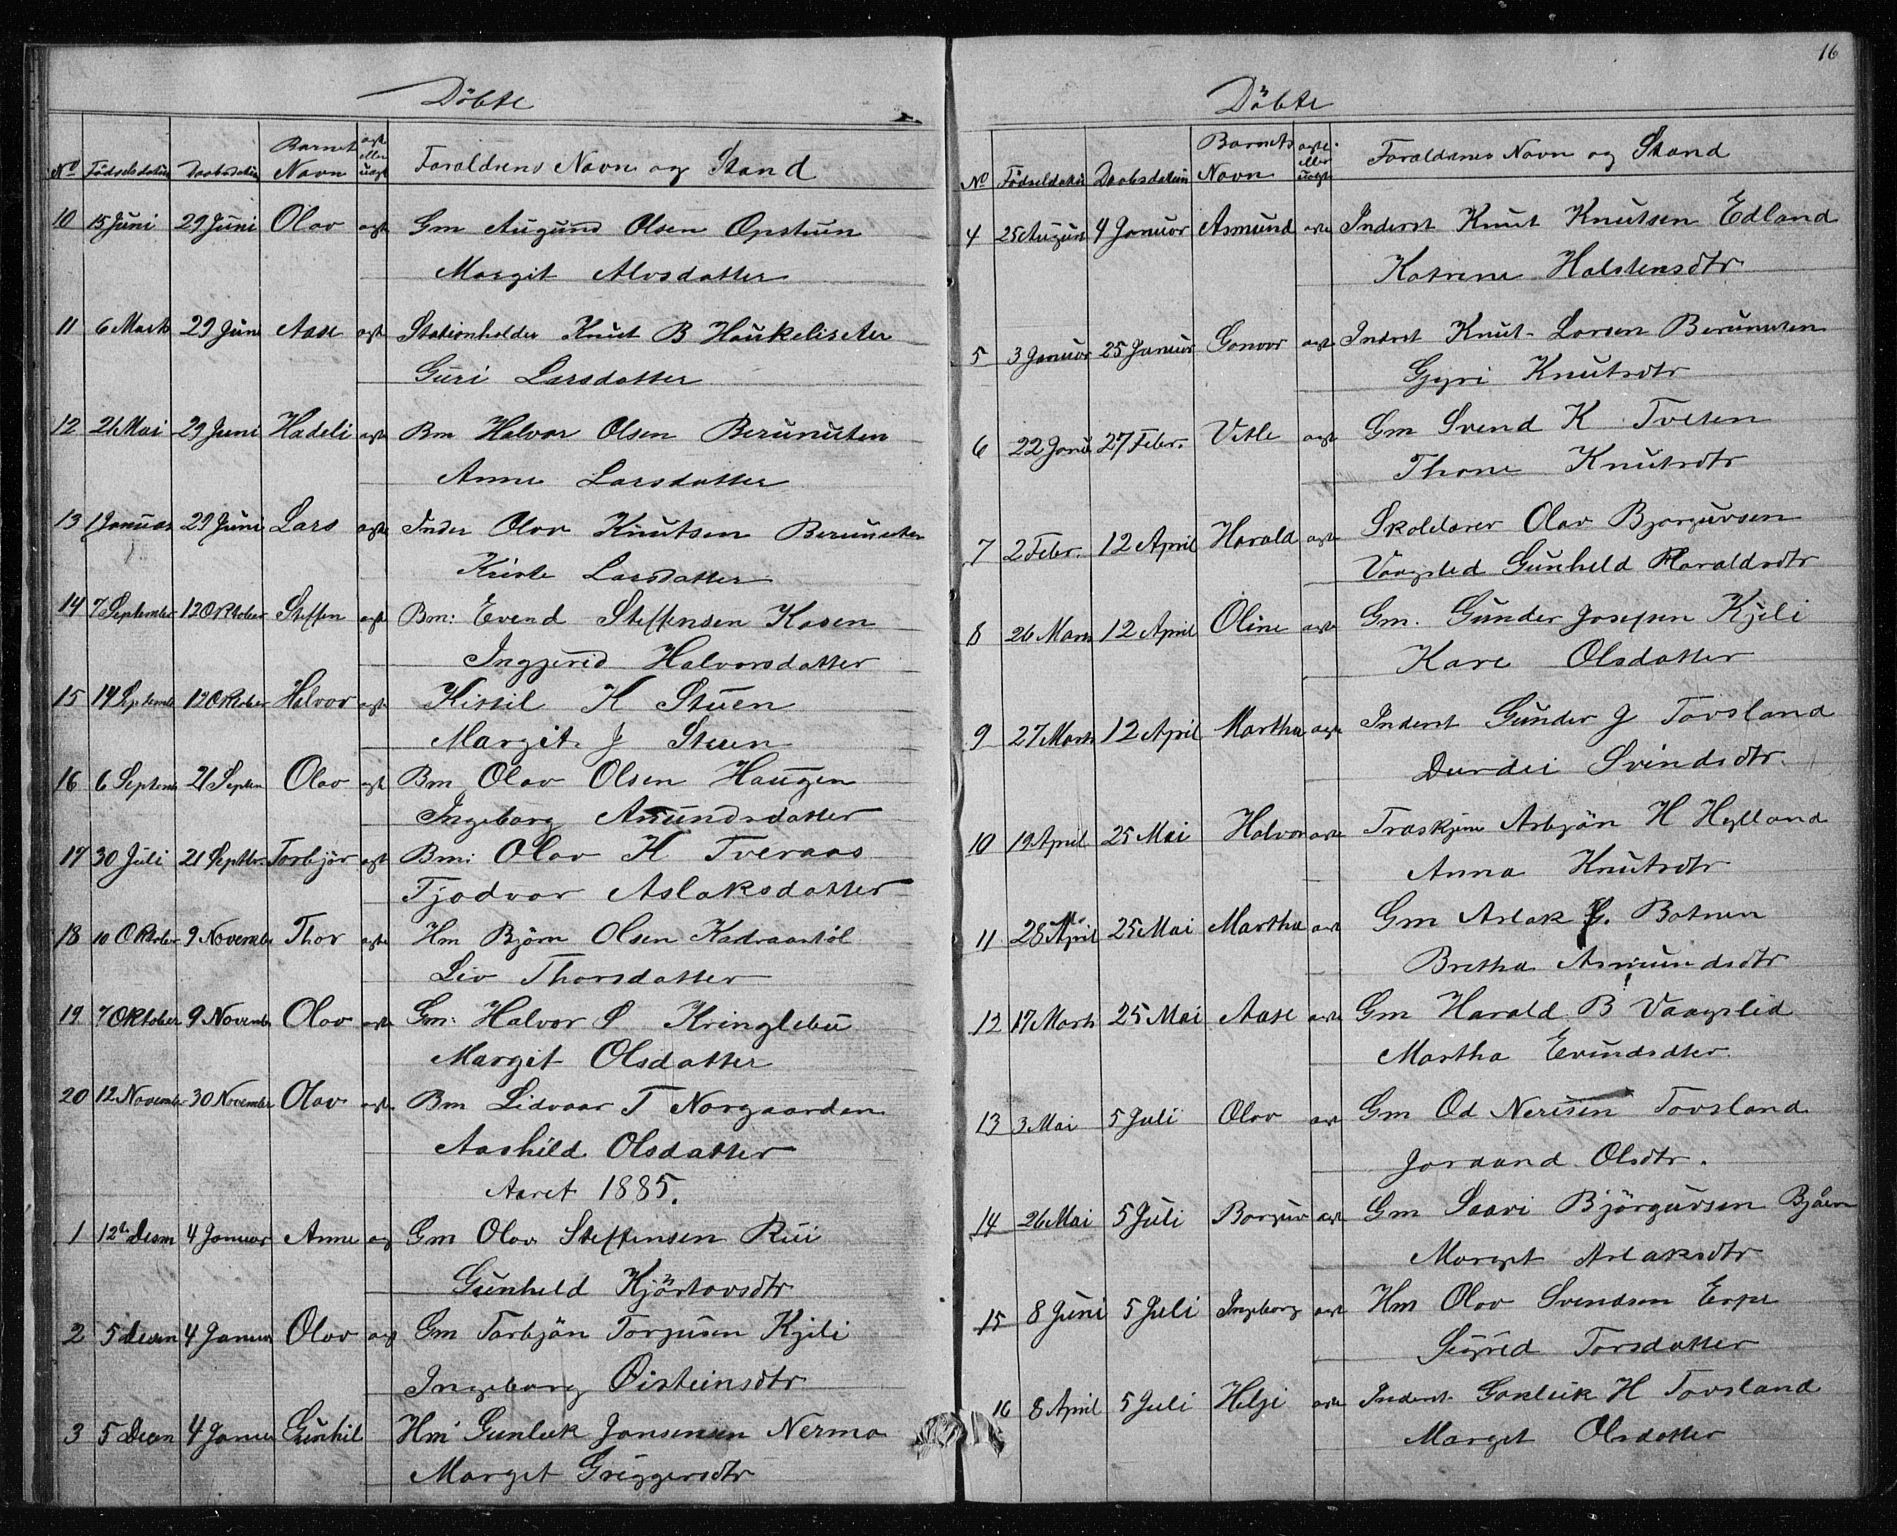 Döbte
No Födselsdatum Daabsdatum Barnets Navn ægte eller uægte Forældrens Navn og Stand
10 15 Juni 29 Juni Olav ægte Gm Augund Olsen Opstuen
Margit Alvsdatter
11 6 Marts 29 Juni Aase ægte Stationholder Knut B Haukeliseter
Guri Larsdatter
12 26 Mai 29 Juni Hadeli ægte Bm Halvor Olsen Berunuten
Anne Larsdatter
13 1 Januar 29 Juni Lars ægte Inder Olav Knutsen Berunuten
Kirste Larsdatter
14 7 September 12 Oktober Steffen ægt Bm: Evend Steffensen Kasen
Inggerid Halvorsdatter
15 14 Septemb 12 Oktober Halvor ægt Kittil K Stuen
Margit J Stuen
16 6 Septem 21 Septem Olav ægt Bm Olav Olsen Haugen
Ingeborg Anundsdatter
17 30 Juli 21 Septbr Torbjör ægt Bm: Olav K Tveraas
Tjodvor Aslaksdatter
18 10 Oktober 9 Novemb Thor ægte Hm Björn Olsen Kadraastöl
Liv Thorsdatter
19 7 Oktober 9 Novemb Olav ægte Gm: Halvor S Kringlebu
Margit Olsdatter
20 12 November 30 November Olav ægte Bm Lidvaar T Norgaarden
Aashild Olsdatter
Aaret 1885.
1 12te Desm 4 Januar Anne æg Gm Olav Steffensen Rui
Gunheld Kjörtovsdtr
2 5 Desem 4 Januar Olav ægt Gm Torbjön Torgusen Kjili
Ingeborg Oisteinsdtr
3 5 Desm 4 Januar Gunhil Hm Gunleik Jonsensen Nermo
Marget Greggersdtr
16
Döbte
No Födselsdatum Daabsdatum Barnets Navn ægte eller uægte Forældrenes Navn og Stand
4 25 August 4 Januar Asmund ægte Inderst Knut Knutsen Edland
Katrine Halstensdtr
5 3 Januar 25 Januar Gonvor ægte Inderst Knut Larsen Berunuten
Gyri Knutsdtr
6 22 Janu 27 Febr. Vetle ægte Gm Svend K Tveten
Thone Knutsdtr
7 2 Febr. 12 April Harald ægte Skolelærer Olav Bjorguvsen
Vaagsled Gunheld Haraldsdtr
8 26 Marts 12 April Oline ægte Gm. Gunder Josefsen Kjeli
Kari Olsdatter
9 27 Marts 12 April Martha ægte Inderst Gunder J Tovsland
Durdei Svindsdtr.
10 19 April 25 Mai Halvor ægte Træskjæer Asbjön H Hylland
Anna Knutsdtr
11 28 April 25 Mai Martha ægt Gm Aslak G. Botnen
Bretha Asmundsdtr
12 17 Marts 25 Mai Aase ægte Gm Harald B Vaagslid
Martha Evindsdter
13 3 Mai 5 Juli Olav ægt Gm Od Nerisen Tovsland
Joraand Olsdtr.
14 26 Mai 5 Juli Borguv ægt Gm Saavi Björguvsen Bjåen
Marget Aslaksdtr
15 8 Juni 5 Juli Ingeborg ægt Hm Olav Svendsen Erpe
Sigrid Torsdatter
16 8 April 5 Juli Helje ægte Inderst Gonleik H Tovsland
Marget Olsdatter